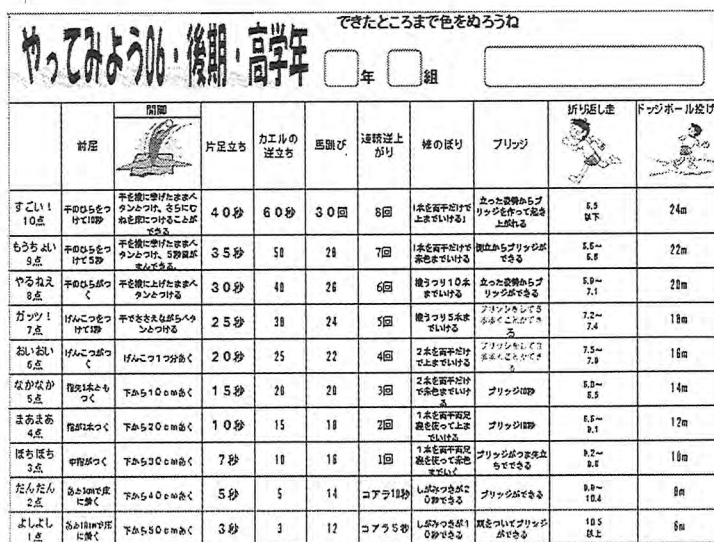 できたところまで色をぬろうね
やってみよう06・後期・高学年
年 組
前屈 開脚 片足立ち カエルの逆立ち 馬跳び 連続逆上がり 棒のぼり ブリッジ 折り返し走 ドッジボール投げ
すごい! 10点 手のひらをつけて10秒 手を横に挙げたままペタンとつけ、さらにむねを床につけることができる 40秒 60秒 30回 8回 1本を両手だけで上までいける 立った姿勢からブリッジを作って起き上がれる 以下 24m
もうちょい 9点 手のひらをつけて5秒 手を横に挙げたままペタンとつけ、5秒間がまんできる。 35秒 50 28 7回 1本を両手だけで茶色までいける 倒立からブリッジができる 22m
やるねえ 8点 手のひらがつく 手を横に上げたままペタンとつける 30秒 40 26 6回 横うつり10本までいける 立った姿勢からブリッジができる 7.1 20m
ガッツ! 7点 げんこつをつけて 手でささえながらペタンとつける 25秒 30 24 5回 横うつり5本までいける 7.2~7.4 18m
おいおい 6点 げんこつがつく げんこつ1つ分あく 20秒 25 22 4回 2本を両手だけで上までいける 7.5~ 16m
なかなか 5点 指先1本ともつく 下から10cmあく 15秒 20 20 3回 2本を両手だけで茶色までいける ブリッジ 14m
まあまあ 4点 下から20cmあく 10秒 15 18 2回 1本を両手両足裏を使って上までいける ブリッジ 12m
ぼちぼち 3点 中指がつく 下から30cmあく 7秒 10 16 1回 1本を両手両足裏を使って茶色までいく ブリッジがつま先立ちでできる 10m
だんだん 2点 下から40cmあく 5秒 5 14 コアラ10秒 しがみつきが20秒できる ブリッジができる 10.4 8m
よしよし 1点 下から50cmあく 3秒 3 12 コアラ5秒 しがみつきが10秒できる 頭をついてブリッジができる 10.5以上 6m